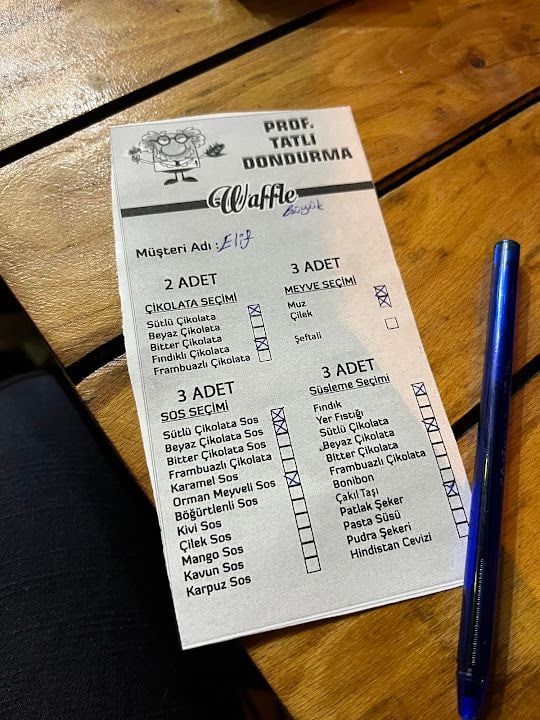 PROF.
TATLI
DONDURMA
Waffle
Büyük
Müşteri Adı : Elif
2 ADET
ÇİKOLATA SEÇİMİ
Sütlü Çikolata
Beyaz Çikolata
Bitter Çikolata
Fındıklı Çikolata
Frambuazlı Çikolata
3 ADET
MEYVE SEÇİMİ
Muz
Çilek
Şeftali
3 ADET
SOS SEÇİMİ
Sütlü Çikolata Sos
Beyaz Çikolata Sos
Bitter Çikolata Sos
Frambuazlı Çikolata
Karamel Sos
Orman Meyveli Sos
Böğürtlenli Sos
Kivi Sos
Çilek Sos
Mango Sos
Kavun Sos
Karpuz Sos
3 ADET
Süsleme Seçimi
Fındık
Yer Fıstığı
Sütlü Çikolata
Beyaz Çikolata
Bitter Çikolata
Frambuazlı Çikolata
Bonibon
Çakıl Taşı
Patlak Şeker
Pasta Süsü
Pudra Şekeri
Hindistan Cevizi